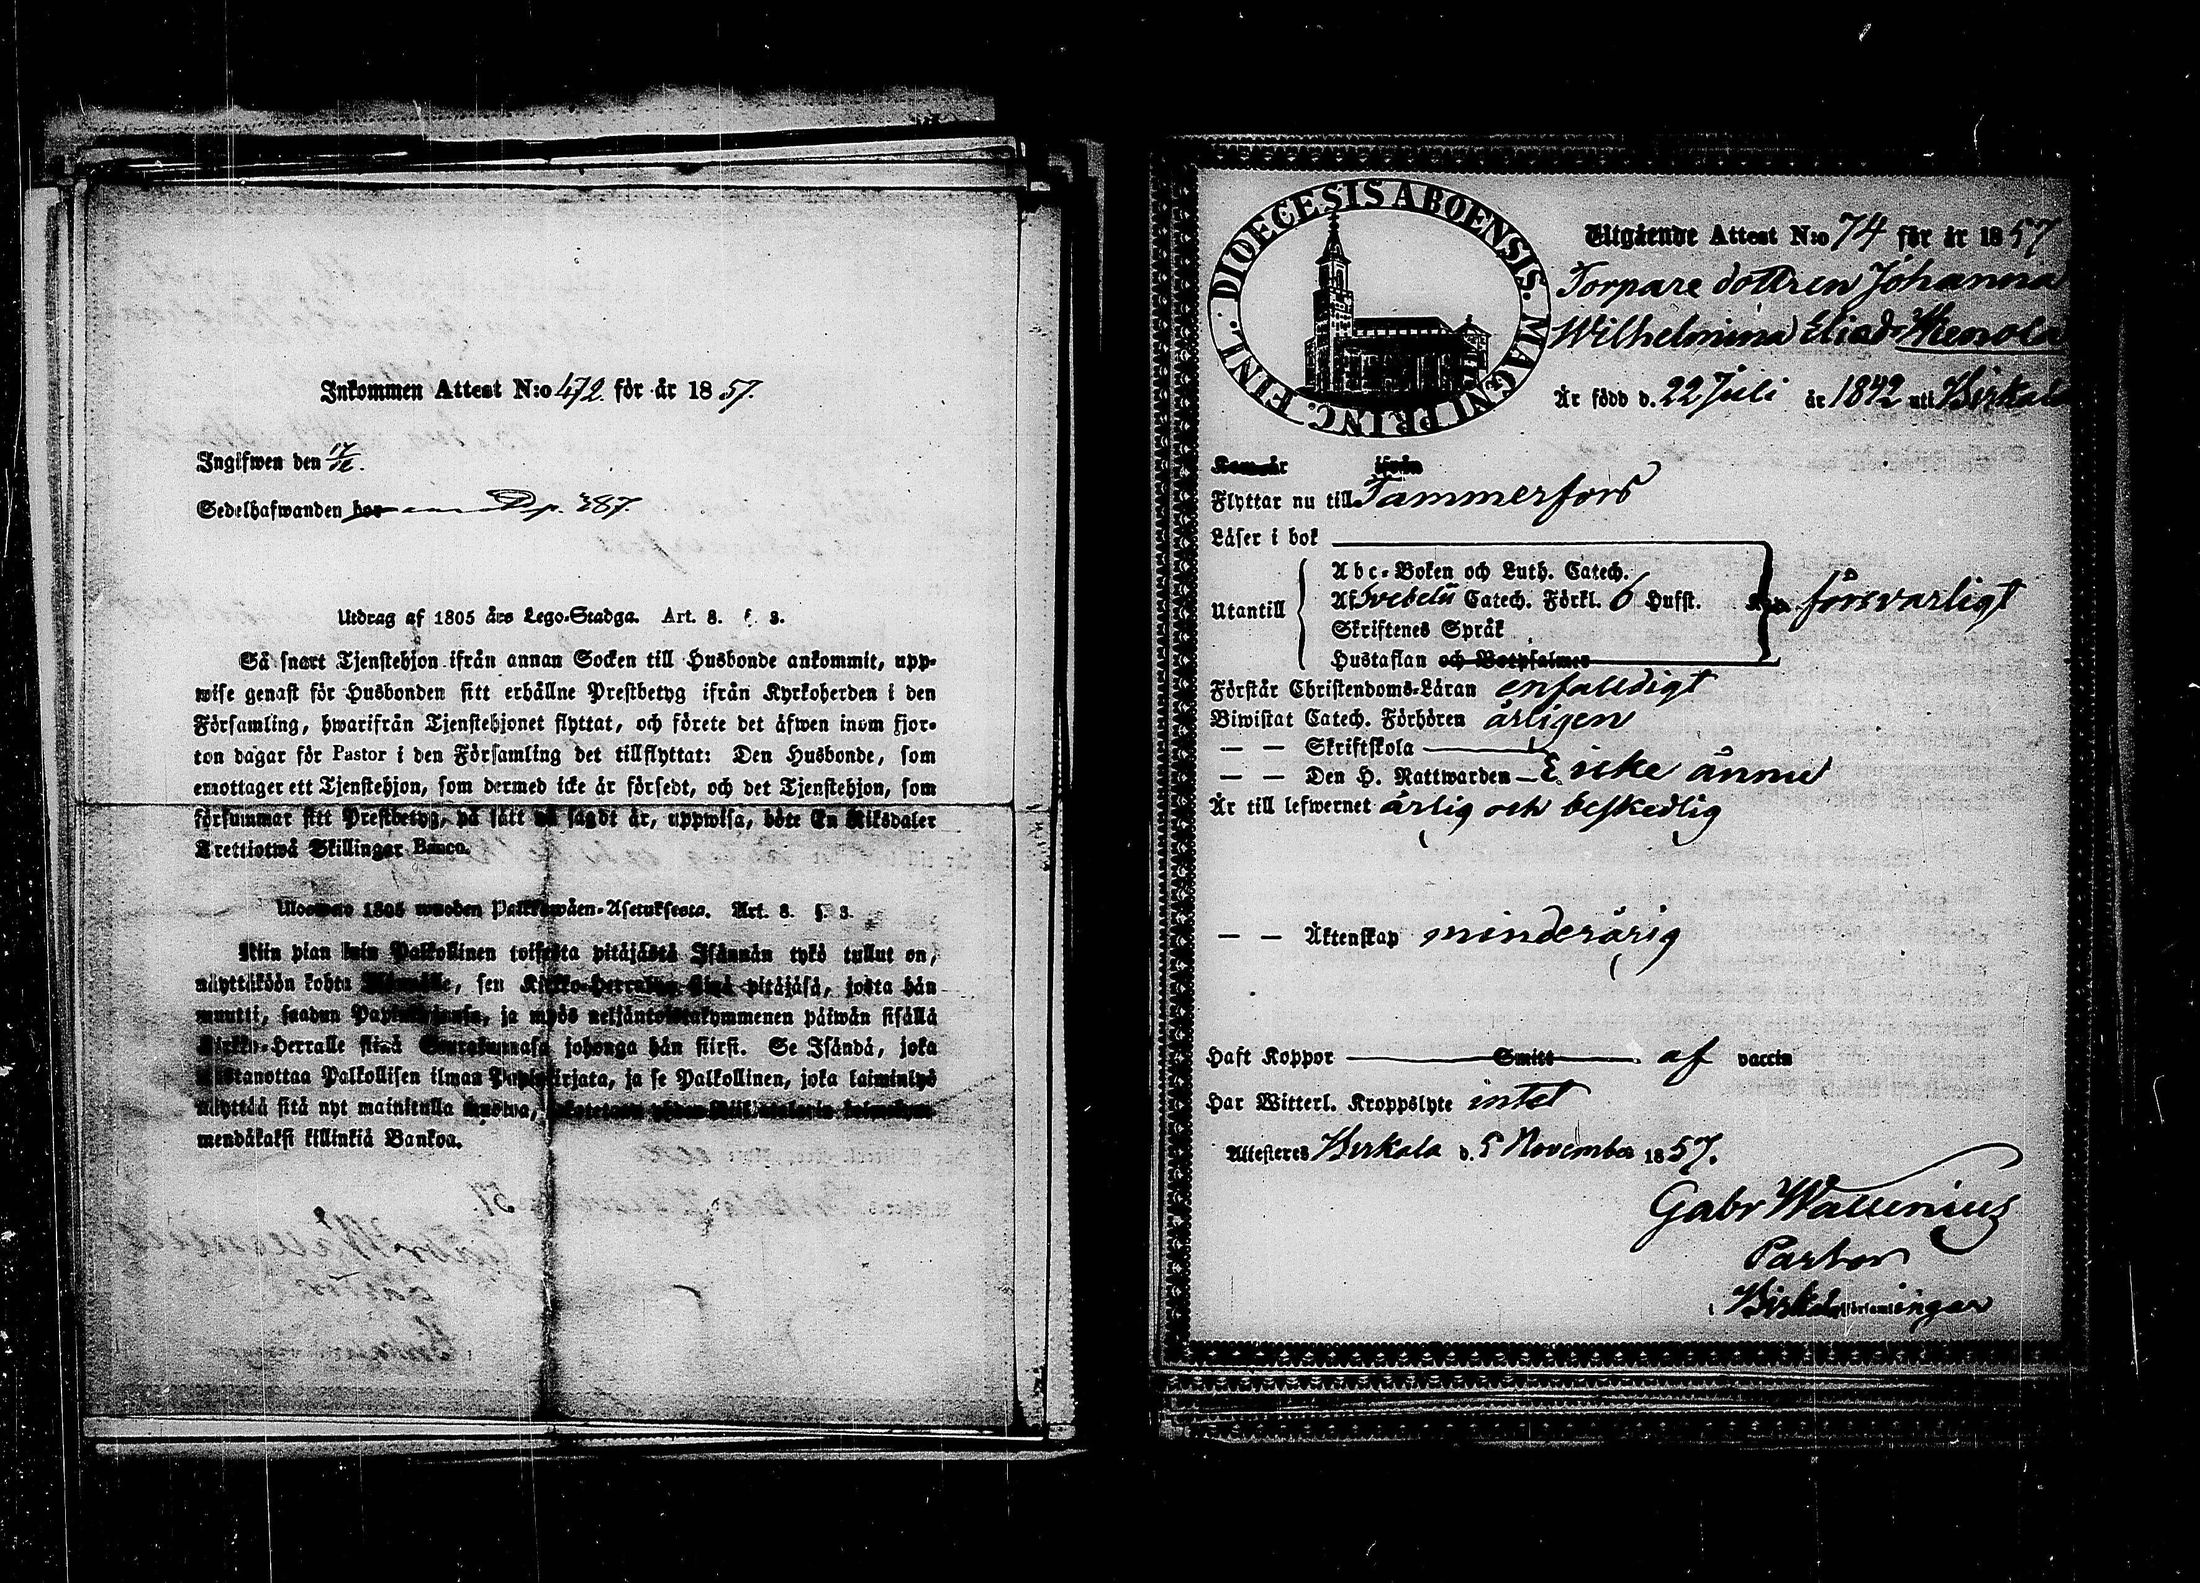 Inkommen Attest N:o 472. för år 1857.
Ingifwen den 17/12.
Sedelhafwanden bor p. 387.
Utdrag af 1805 års Lego-Stadga. Art. 8. §. 3.
Så snart Tjenstehjon ifrån annan Socken till Husbonde ankommit, upp-
wise genast för Husbonden sitt erhållne Prestbetyg ifrån Kyrkoherden i den
Församling, hwarifrån Tjenstehjonet flyttat, och förete det äfwen inom fjor-
ton dagar för Pastor i den Församling det tillflyttat: Den Husbonde, som
emottager ett Tjenstehjon, som dermed icke är försedt, och det Tjenstehjon, som
försummar sitt Prestbetyg, på sätt nu sagdt är, uppwisa, böte En Riksdaler
Trettiotwå Skillingar Banco.
Ulosweto 1805 wuoden Palkkawäen-Asetuksesta. Art. 8. §. 3.
Niin pian kuin Palkollinen toisesta pitäjästä Isännän tykö tullut on,
näyttäköön kohta Isännälle, sen Kirkko-Herralta siinä pitäjäsä, josta hän
muutti, saadun Papinkirjansa, ja myös neljäntoistakymmenen päiwän sisällä
Kirkko-Herralle siinä Seurakunnasa johonga hän siirsi. Se Isändä, joka
wastanottaa Palkollisen ilman Papinkirjata, ja se Palkollinen, joka laiminlyö
näyttää sitä nyt mainitulla muotoa,
mendäkaksi killinkiä Bankoa.
DIOECESIS ABOENSIS. MAGNI PRINC. FINL.
Utgående Attest N:o 74 för år 1857
Torpare dottren Johanna
Wilhelmina Eliasdr
Är född d. 22 Juli år 1842 uti Birkala
Kom år ifrån
Flyttar nu till Tammerfors
Läser i bok
Abc-Boken och Luth. Catech.
Utantill Af Svebelii Catech. Förkl. 6 Hufst. försvarligt
Skriftenes Språk
Hustaflan och Botpsalmer
Förstår Christendoms-Läran enfaldigt
Biwistat Catech. Förhören årligen
— — Skriftskola
— — Den H. Nattwarden icke ännu
Är till lefwernet ärlig och beskedlig
— — Äktenskap minderårig
Haft Koppor Smitt af vaccin
Har Witterl. Kroppslyte intet
Attesteres Birkala d. 5 November 1857.
Gabr Wallenius
Pastor
i Birkala församlingar